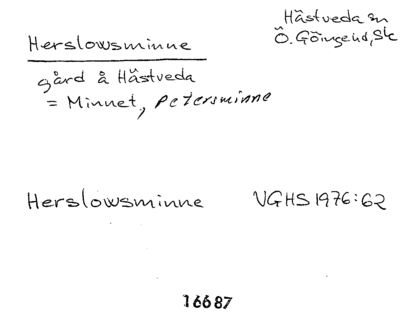 Herslowsminne
Hästveda sn
Ö. Göinge hd, Sk
gård å Hästveda
= Minnet, Petersminne
Herslowsminne VGHS 1976:62
16687